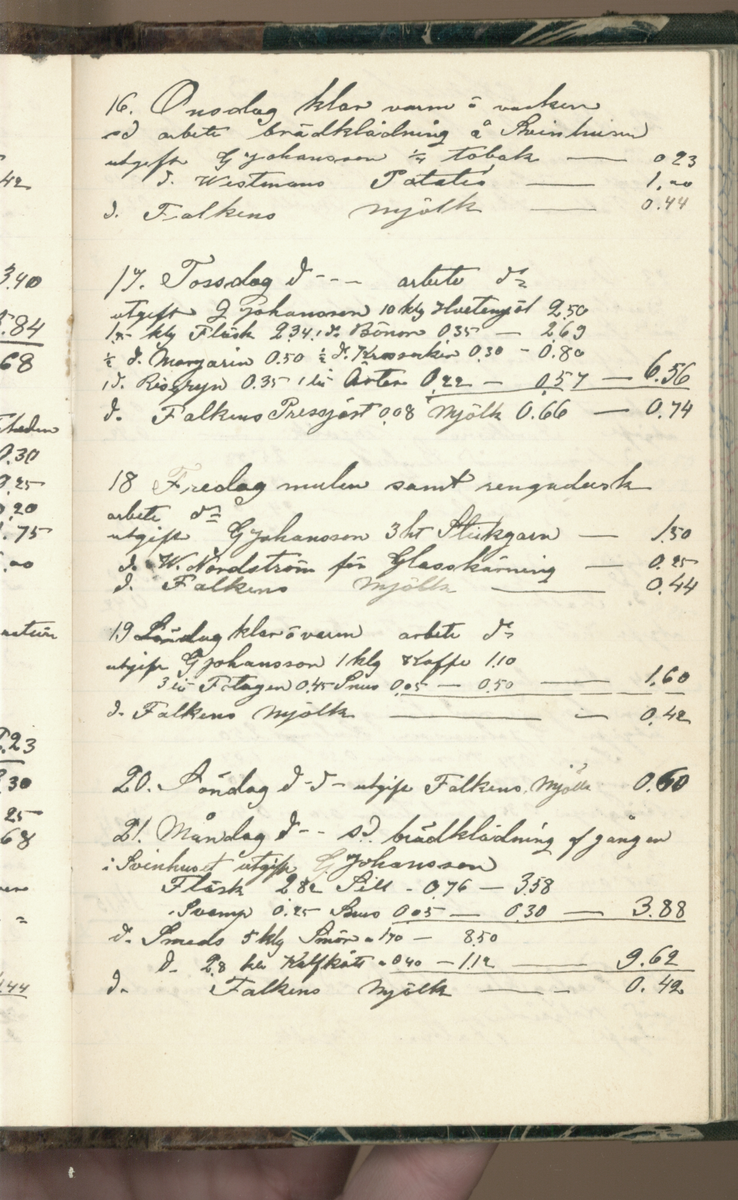 42
3.40
3.84
68
0.30
0.25
0.20
.75
5.23
3.30
25
68
.44
16. Onsdag klar varm ö vacker
sd arbete brädklädning å Svinhuset
utgift G Johansson ¼ tobak — 0.23
d. Westmans Potatis — 1.00
d. Falkens Mjölk — 0.44
17. Torsdag d - - - arbete d:o
utgift G Johansson 10 klg Hvetemjöl 2.50
klg Fläsk 2.34 1 d. Bönor 0.35 — 2.69
½ d. Margarin 0.50 ½ d. 0.30 - 0.80
1 d. Risgryn 0.35 1 lit Ärter 0.22 — 0.57 — 6.56
d. Falkens Pressjäst 0.08 Mjölk 0.66 — 0.74
18 Fredag mulen samt regndusk
arbete d:o
utgift G Johansson 3 ht Stickgarn — 1.50
d. W. Nordström för Glasskärning — 0.25
d. Falkens Mjölk — 0.44
19 Lördag klar ö varm arbete d:o
utgift G Johansson 1 klg Kaffe 1.10
3 lit Fotogen 0.45 Snus 0.05 — 0.50 — 1.60
d. Falkens Mjölk — 0.42
20. Söndag d - d - utgift Falkens Mjölk 0.60
21. Måndag d - - sd. brädklädning af gången
i Svinhuset utgift G Johansson
Fläsk 2.82 Sill - 0.76 — 3.58
Svamp 0.25 Snus 0.05 — 0.30 — 3.88
d. Smeds 5 klg Smör a 1.70 — 8.50
d. 2.8 Kalfkött a 0.40 — 1.12 — 9.62
d. Falkens Mjölk — 0.42